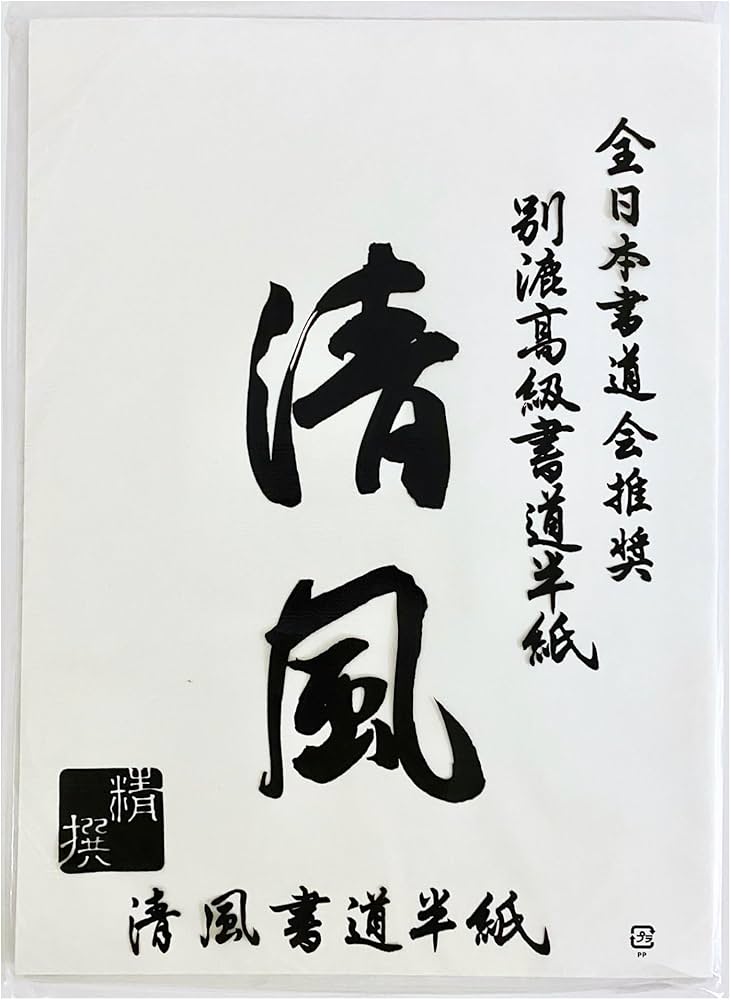 全日本書道会推奨
別漉高級書道半紙
清風
精撰
清風書道半紙
プラ
PP